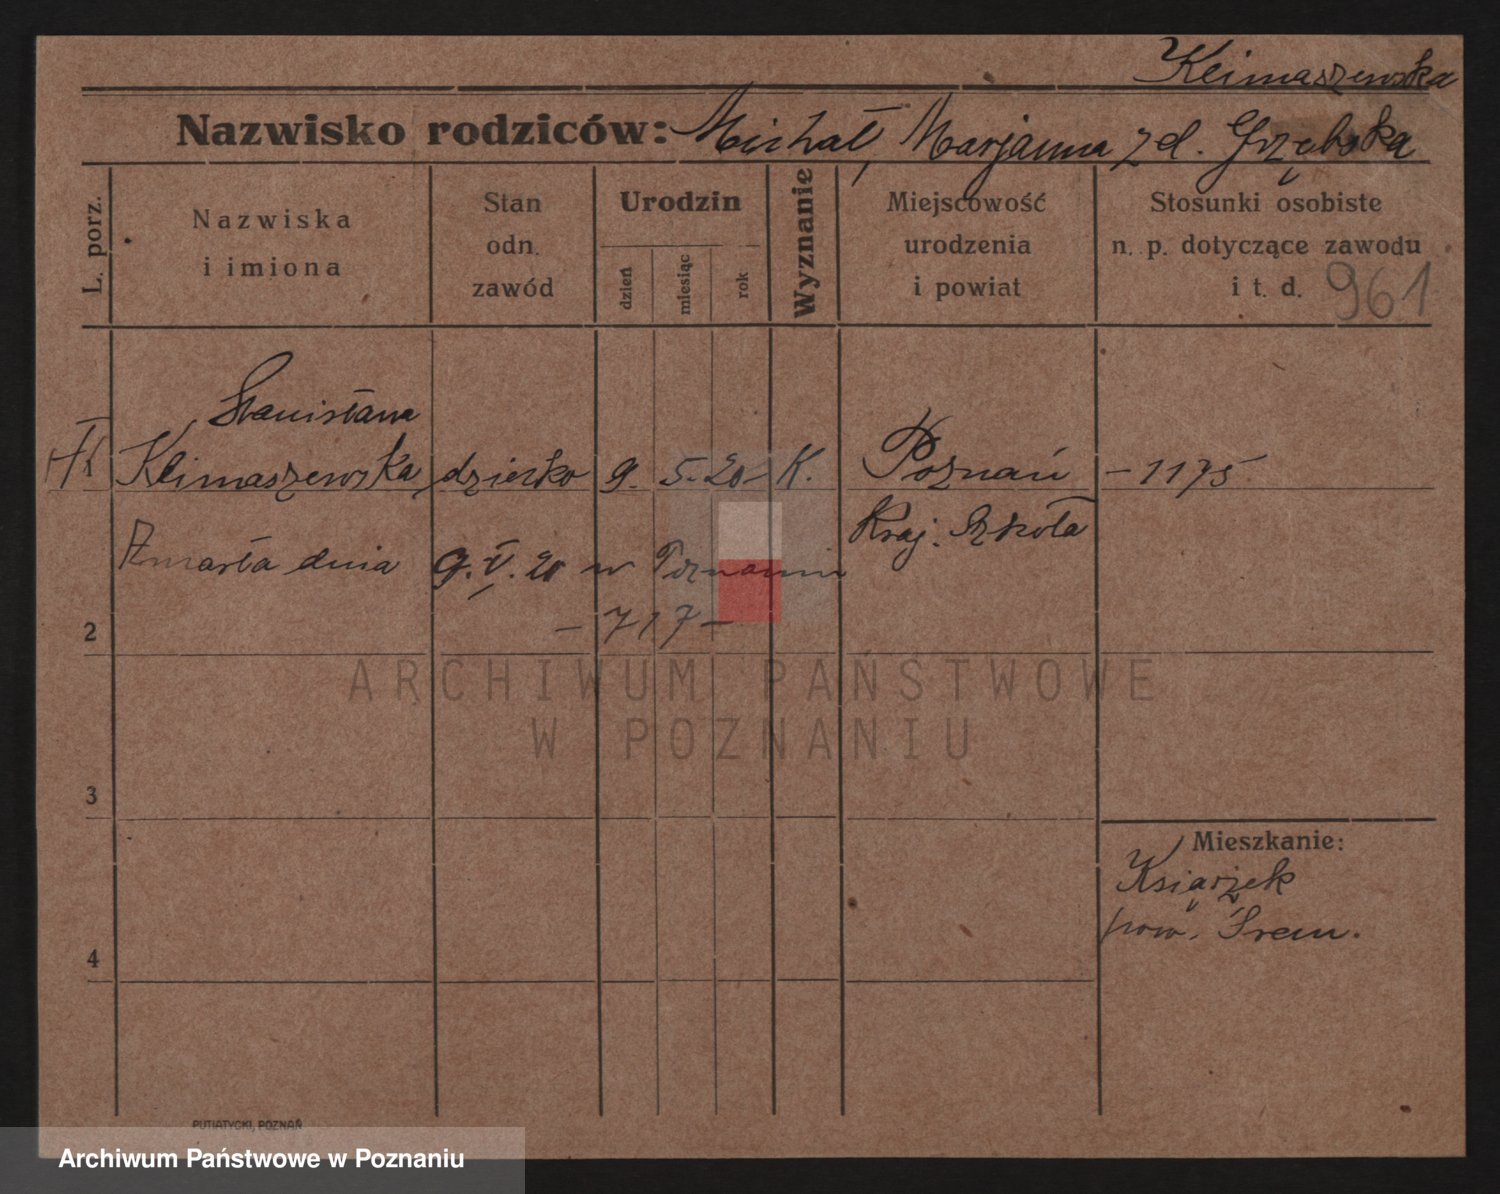 Klimaszewska
Nazwisko rodziców: Michał, Marjanna zd. Grzębska
L. porz.
Nazwiska
i imiona
Stan
odn.
zawód
Urodzin
dzień
miesiąc
rok
Wyznanie
Miejscowość
urodzenia
i powiat
Stosunki osobiste
n. p. dotyczące zawodu
i t. d.
961
Stanisława
Klimaszewska, dziecko 9. 5. 20 - K. Poznań - 1175
Kraj. Szkoła
Zmarła dnia 9. V. 20 w Poznaniu
- 717 -
2
ARCHIWUM PAŃSTWOWE
W POZNANIU
3
Mieszkanie:
Książek
pow. Śrem.
4
PUTIATYCKI, POZNAŃ
Archiwum Państwowe w Poznaniu